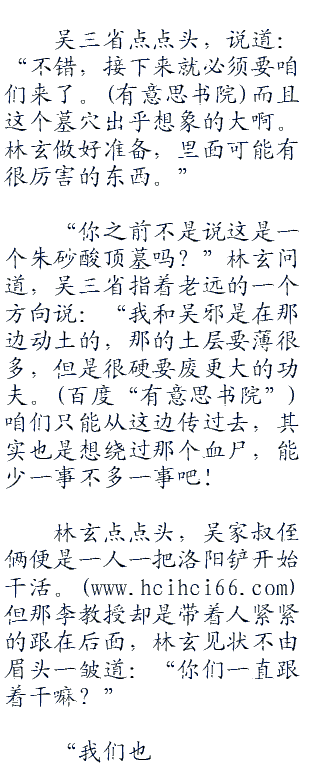 吴三省点点头，说道：
“不错，接下来就必须要咱
们来了。(有意思书院)而且
这个墓穴出乎想象的大啊。
林玄做好准备，里面可能有
很厉害的东西。”
“你之前不是说这是一
个朱砂酸顶墓吗？”林玄问
道，吴三省指着老远的一个
方向说：“我和吴邪是在那
边动土的，那的土层要薄很
多，但是很硬要废更大的功
夫。(百度“有意思书院”)
咱们只能从这边传过去，其
实也是想绕过那个血尸，能
少一事不多一事吧！
林玄点点头，吴家叔侄
俩便是一人一把洛阳铲开始
干活。(www.hcihci66.com)
但那李教授却是带着人紧紧
的跟在后面，林玄见状不由
眉头一皱道：“你们一直跟
着干嘛？”
“我们也